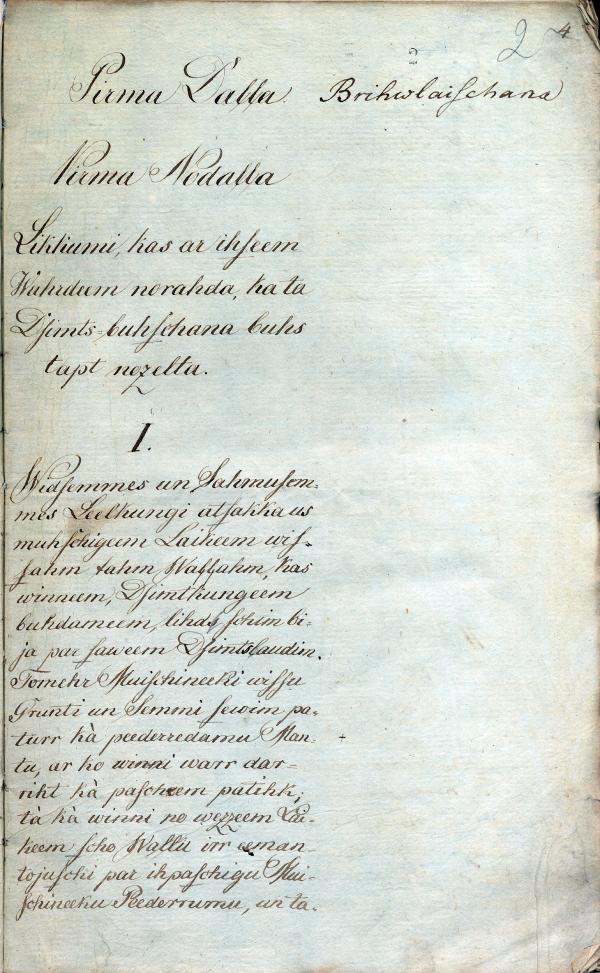 2 4
Pirma Dalla. Brihwlaischana
Pirma Nodalla
Likkumi, kas ar ihseem
Wahrdeem norahda, ka ta
Dsimts-buhschana buhs
tapt nozelta.
I.
Widsemmes un Sahmusem-
mes Leelkungi atsakka us
muhschigeem Laikeem wis-
sahm tahm Wallahm, kas
winneem, Dsimtkungeem
buhdameem, lihds schim bi-
ja par saweem Dsimtslaudim.
Tomehr Muischineeki wissu
Grunti un Semmi sewim pa-
turr kà peederredamu Man-
tu, ar ko winni warr dar-
riht kà pascheem patihk;
tà kà winni no wezzeem Lai-
keem scho Wallu irr eeman-
tojuschi par ihpaschigu Mui-
schineeku Peederrumu, un ta-